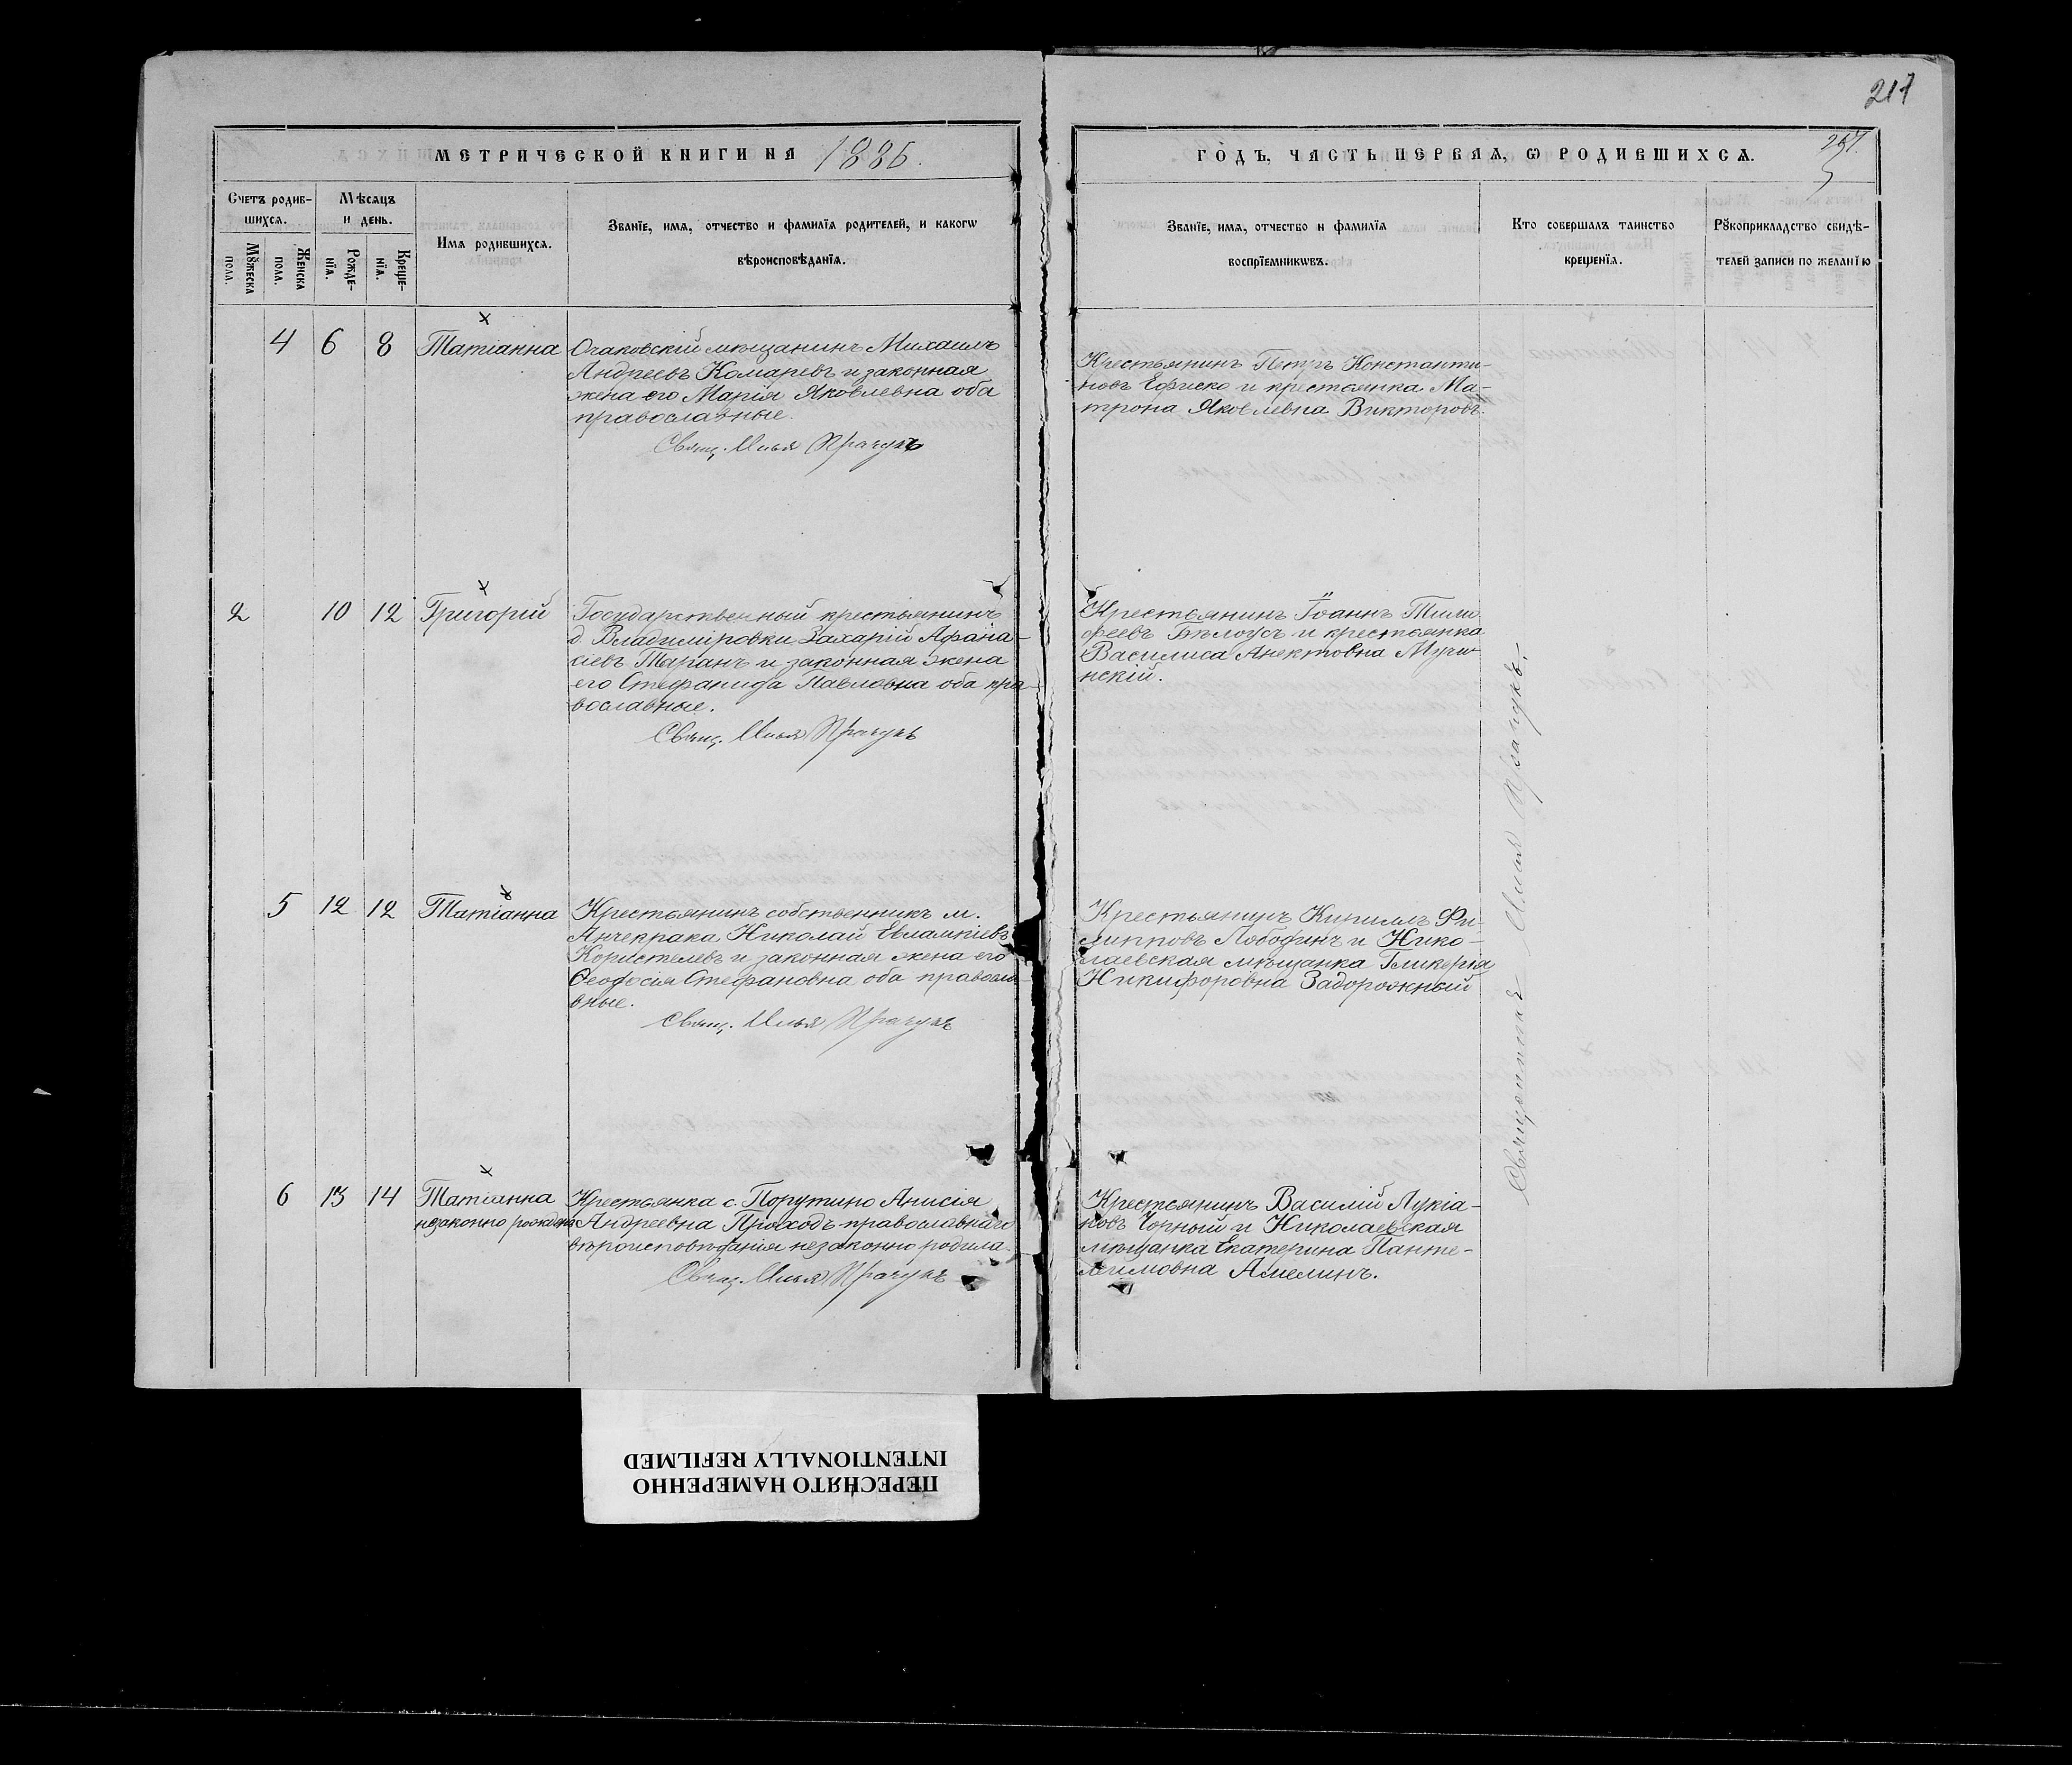 217
МЕТРИЧЕСКОЙ КНИГИ НА 1886.
ГОДЪ, ЧАСТЬ ПЕРВАЯ, Ѡ РОДИВШИХСѦ.
Счетъ родив-
шихсѧ.
Мѣсѧцъ
и день.
Мꙋжеска
пола.
Женска
пола.
Рожде-
нїѧ.
Креще-
нїѧ.
Имѧ родившихсѧ.
Званїе, имѧ, отчество и фамилїѧ родителей, и какогѡ
вѣроисповѣданїѧ.
Званїе, имѧ, отчество и фамилїѧ
воспрїемникѡвъ.
Кто совершалъ таинство
крещенїѧ.
Рꙋкоприкладство свидѣ-
телей записи по желанїю
4 6 8 Татіанна
Очаковскій мѣщанинъ Михаилъ
Андреевъ Комаревъ и законная
жена его Марія Яковлевна оба
православные.
Свящ. Илья Прачукъ
Крестьянинъ Петръ Константи-
новъ Ефиско и крестьянка Ма-
трона Яковлевна Викторовъ.
2 10 12 Григорій
Государственный крестьянинъ
д. Владиміровки Захарій Афана-
сіевъ Таранъ и законная жена
его Стефанида Павловна оба пра-
вославные.
Свящ. Илья Прачукъ
Крестьянинъ Іоаннъ Тимо
феевъ Бѣлоусъ и крестьянка
Василиса Анектовна Мучи-
нскій.
5 12 12 Татіанна
Крестьянинъ собственникъ м.
Анчекрака Николай Евлампіевъ
Користелевъ и законная жена его
Ѳеодосія Стефановна оба правосла-
вные.
Свящ. Илья Прачукъ
Крестьянинъ Кириллъ Фи-
липповъ Лободинъ и Нико-
лаевская мѣщанка Гликерія
Никифоровна Задорожный
6 13 14 Татіанна
незаконно рождена
Крестьянка с. Порутино Анисія
Андреевна Проходъ православнаго
вѣроисповѣданія незаконно родила.
Свящ. Илья Прачукъ
Крестьянинъ Василій Лукіа-
новъ Чорный и Николаевская
мѣщанка Екатерина Панте-
леимовна Амелинъ.
Священникъ Илья Прачукъ.
ПЕРЕСНЯТО НАМЕРЕННО
INTENTIONALLY REFILMED